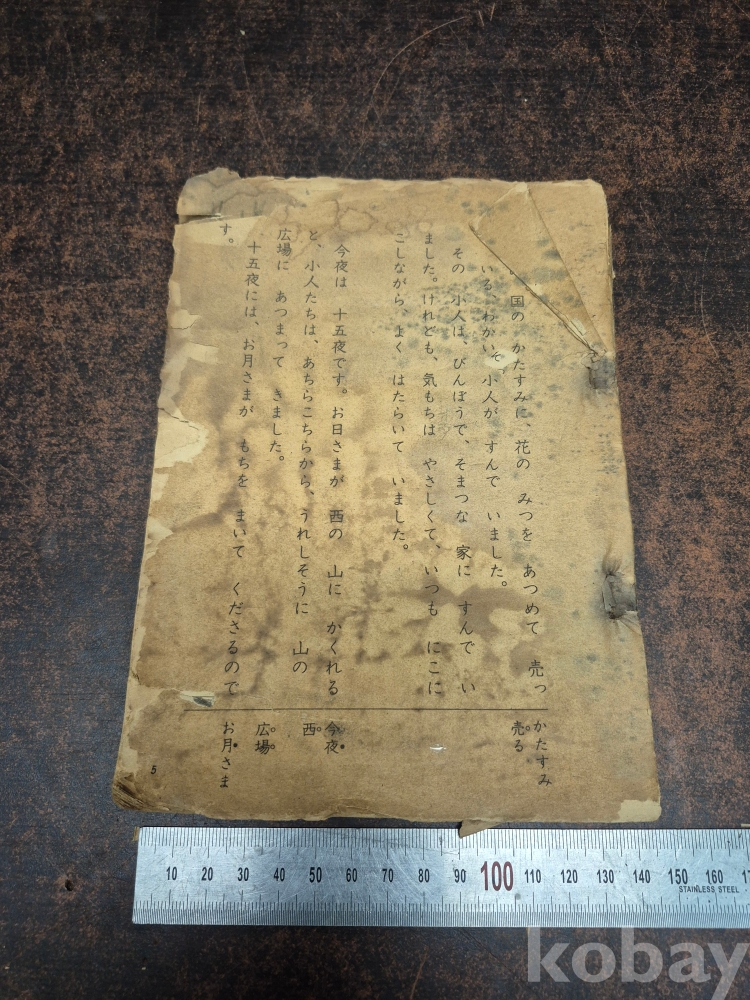 国の かたすみに、花の みつを あつめて 売っ
いる、わかい 小人が すんで いました。
その 小人は、びんぼうで、そまつな 家に すんで い
ました。けれども、気もちは やさしくて、いつも にこに
こしながら、よく はたらいて いました。
今夜は 十五夜です。お日さまが 西の 山に かくれる
と、小人たちは、あちらこちらから、うれしそうに 山の
広場に あつまって きました。
十五夜には、お月さまが もちを まいて くださるので
す。
かたすみ
売る
今夜
西
広場
お月さま
5
10 20 30 40 50 60 70 80 90 100 110 120 130 140 150 160
STAINLESS STEEL
kobay